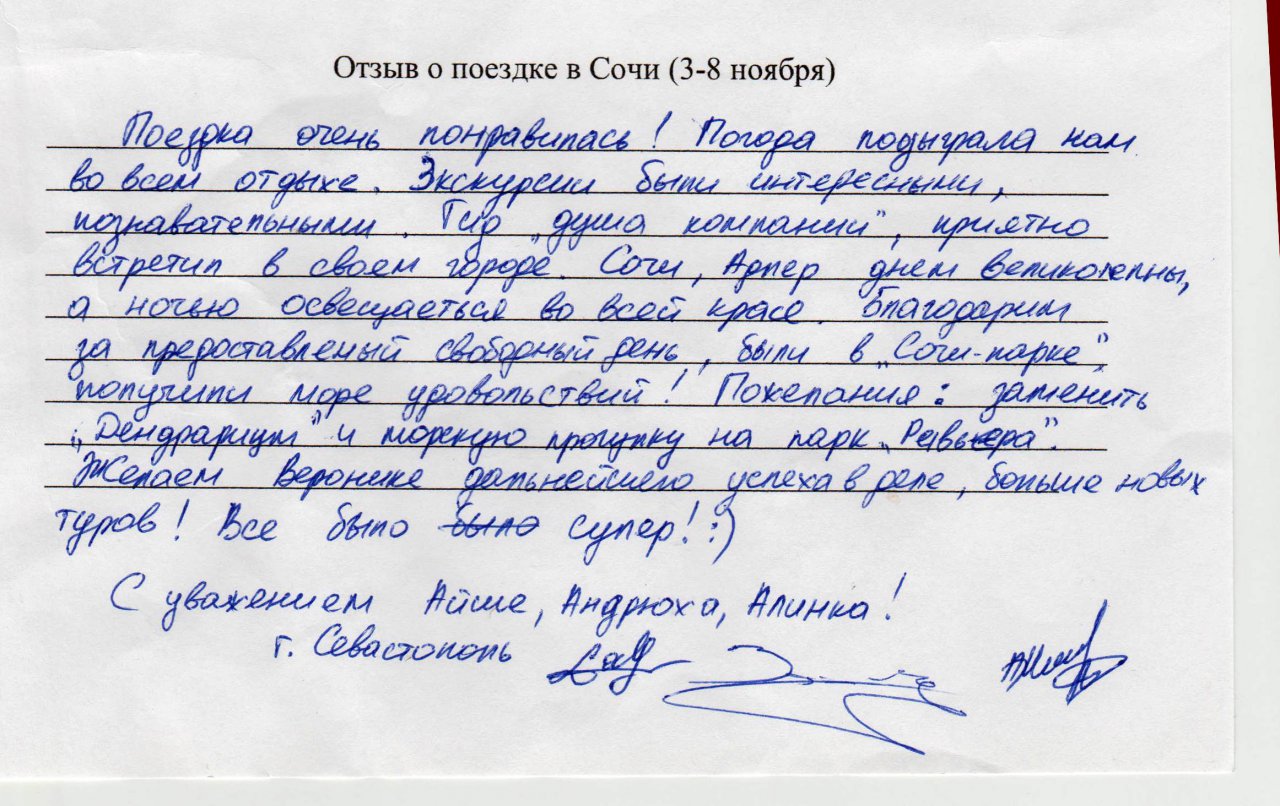 Отзыв о поездке в Сочи (3-8 ноября)
Поездка очень понравилась! Погода подыграла нам
во всем отдыхе. Экскурсии были интересными,
познавательными. Гид "душа компании", приятно
встретил в своем городе. Сочи, Адлер днем великолепны,
а ночью освещаеться во всей красе. Благодарим
за предоставленый свободный день, были в „Сочи-парке",
получили море удовольствий! Пожелания: заменить
„Дендрариум" и морскую прогулку на парк „Ревьера".
Желаем Веронике дальнейшего успеха в деле, больше новых
туров! Все было было супер! :)
С уважением Айше, Андрюха, Алинка!
г. Севастополь